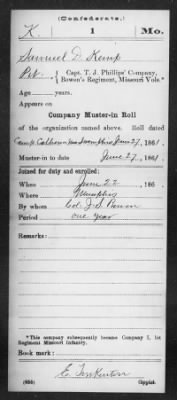 (Confederate.)
K. 1 Mo.
Samuel D. Kemp
Pvt., Capt. T. J. Phillips' Company,
Bowen's Regiment, Missouri Vols.*
Age years.
Appears on
Company Muster-in Roll
of the organization named above. Roll dated
Camp Calhoun near Memphis June 27, 1861.
Muster-in to date June 27, 1861.
Joined for duty and enrolled:
When June 22, 186 .
Where Memphis
By whom Col. J. S. Bowen
Period one year
Remarks:
*This company subsequently became Company I, 1st
Regiment Missouri Infantry.
Book mark:
(655) Copyist.